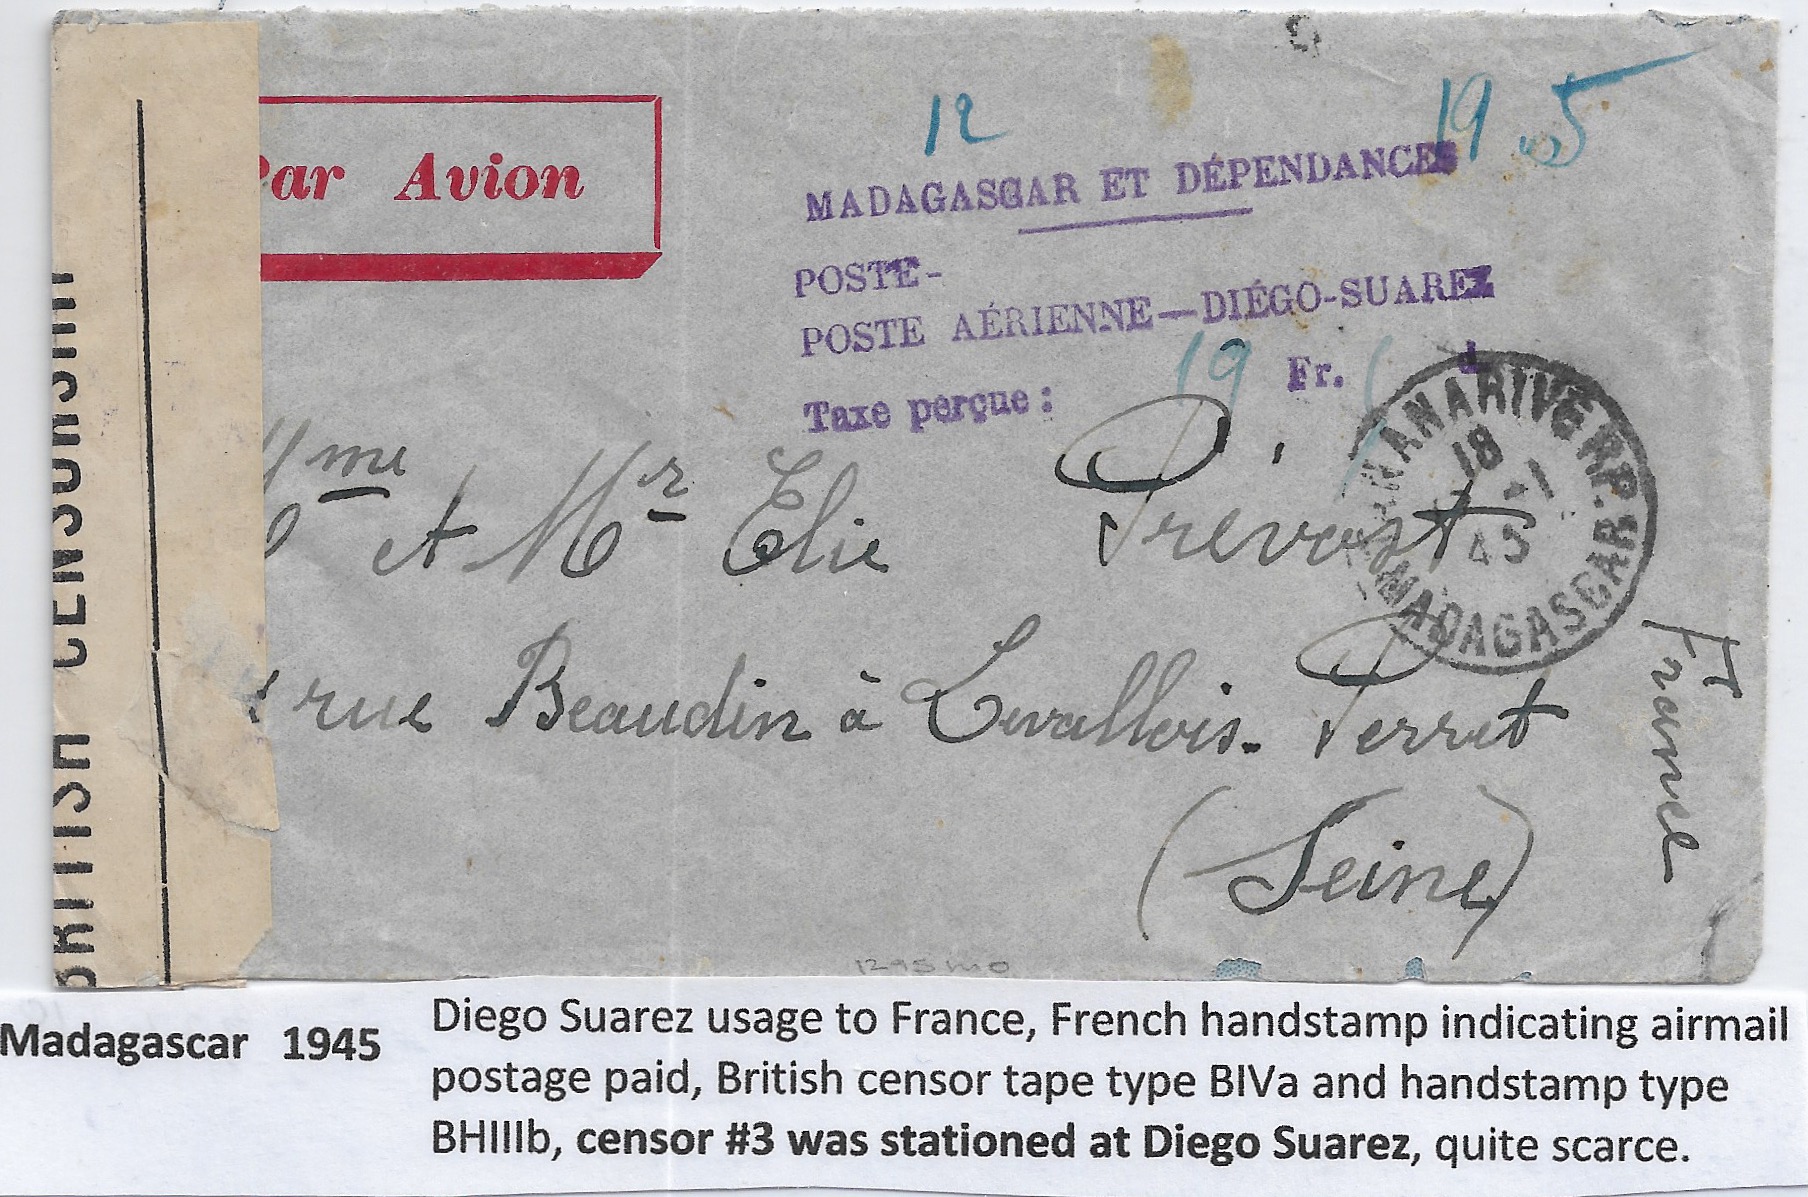 12
19
5
Par Avion
MADAGASCAR ET DÉPENDANCES
POSTE-
POSTE AÉRIENNE—DIÉGO-SUAREZ
Taxe perçue : 19 Fr.
TANANARIVE RP.
18 -1
45
MADAGASCAR
Mme et Mr Elie Prévost
rue Beaudin à Levallois-Perret
(Seine)
France
BRITISH CENSORSHIP
Madagascar 1945
Diego Suarez usage to France, French handstamp indicating airmail
postage paid, British censor tape type BIVa and handstamp type
BHIIIb, censor #3 was stationed at Diego Suarez, quite scarce.